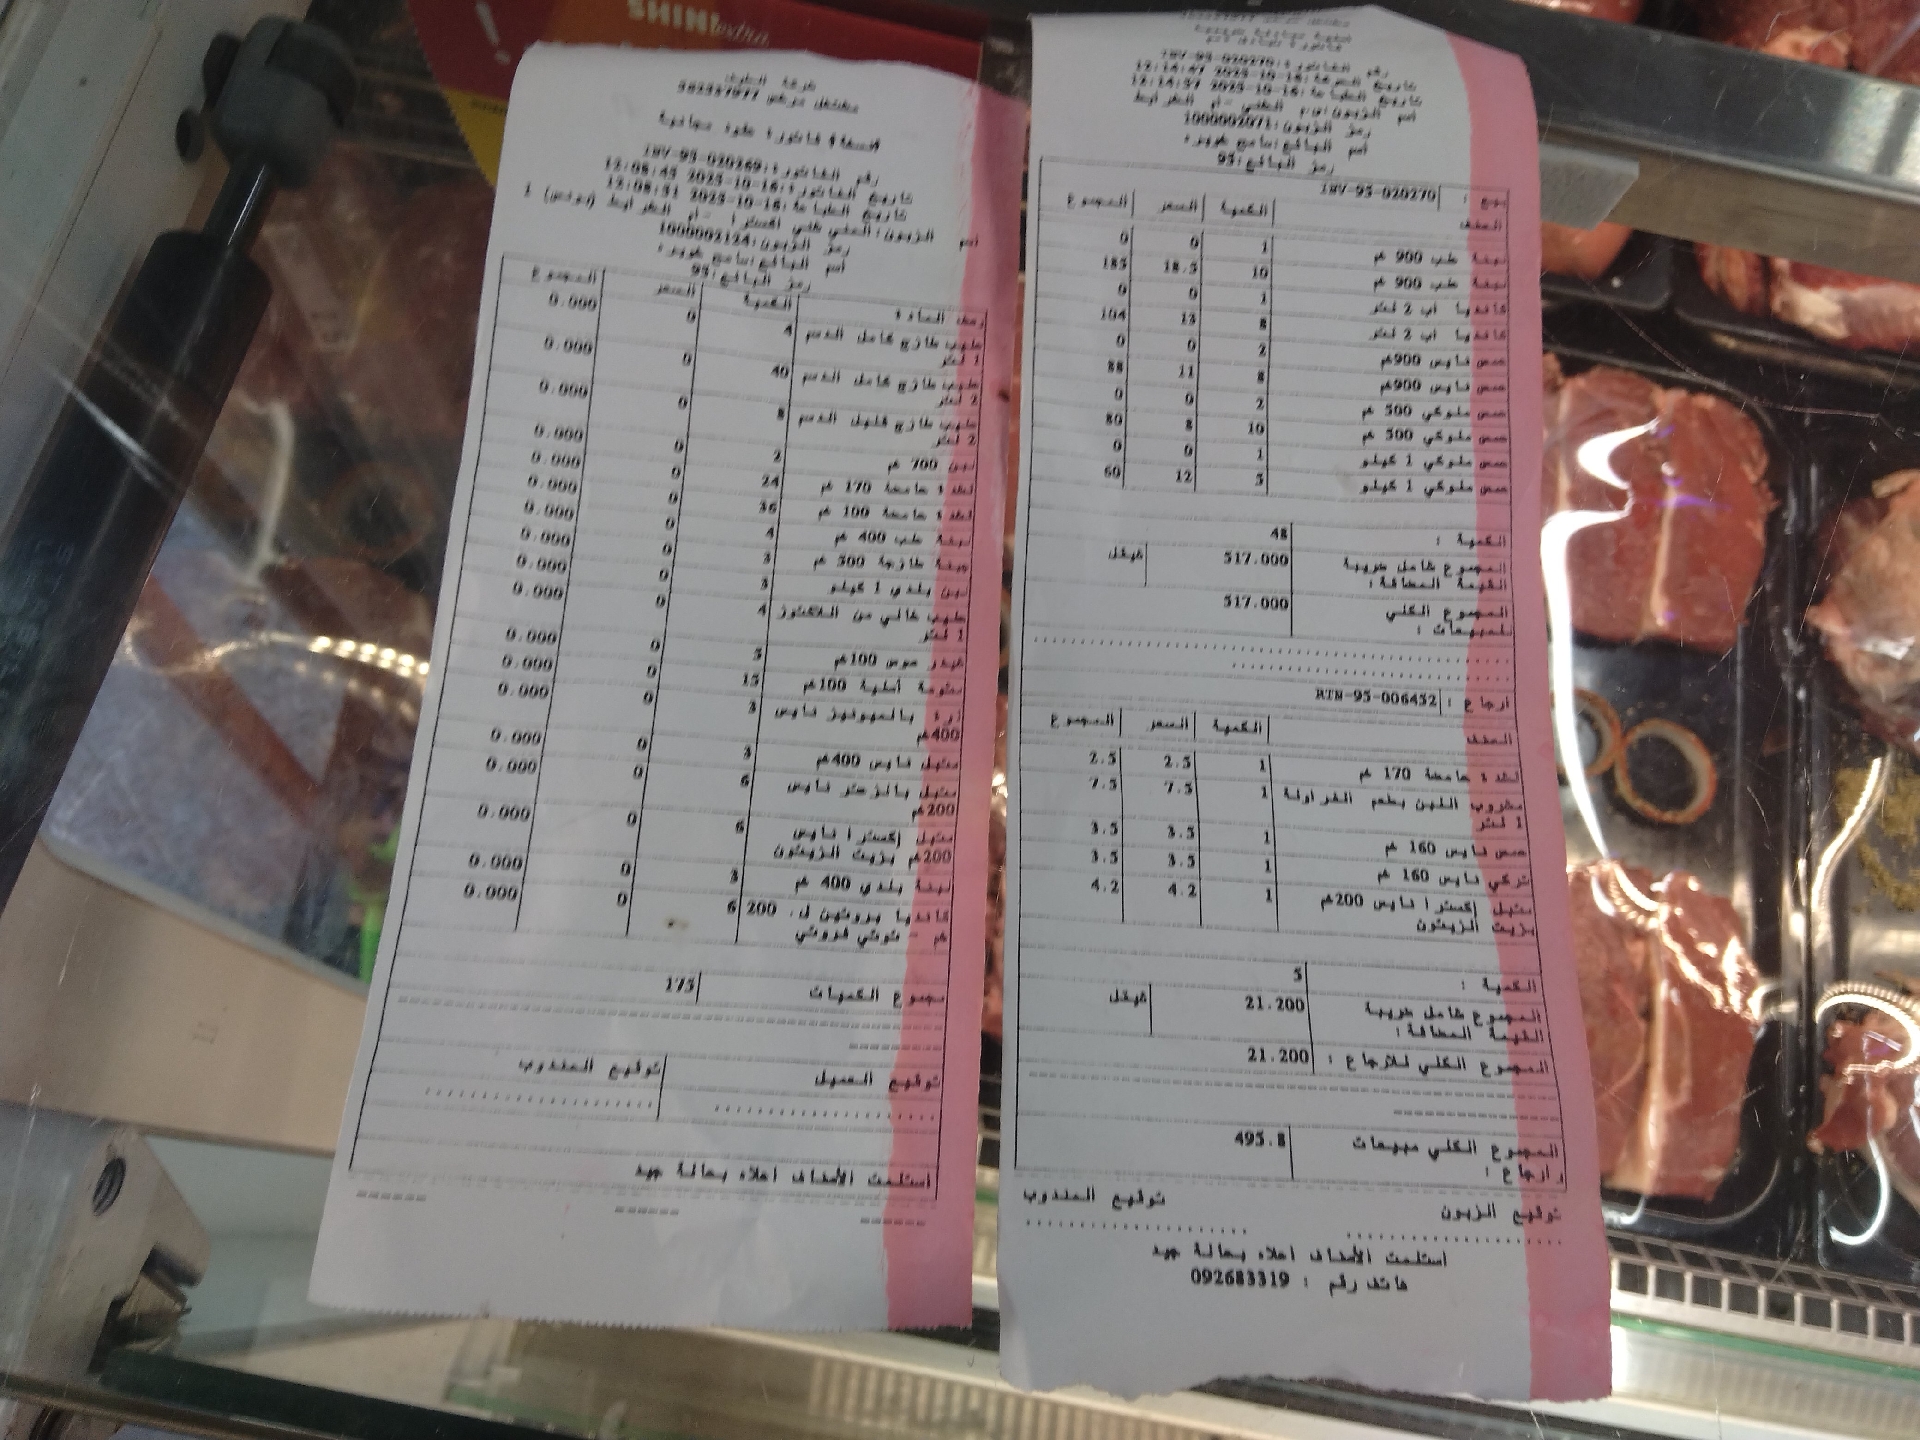 SHINI extra
شركة الطيف
مشتغل مرخص 562357977
رقم الفاتورة: INV-95-020269
تاريخ الفاتورة: 2025-10-16 12:08:45
تاريخ الطباعة: 2025-10-16 12:08:51
رمز الزبون: 1000002124
رمز البائع: 95
وصف المادة الكمية السعر المجموع
حليب طازج كامل الدسم 1 لتر 4 0 0.000
حليب طازج كامل الدسم 2 لتر 40 0 0.000
حليب طازج قليل الدسم 2 لتر 8 0 0.000
لبن 700 غم 2 0 0.000
لشدة حامضة 170 غم 24 0 0.000
لشدة حامضة 100 غم 36 0 0.000
لبنة طب 400 غم 4 0 0.000
جبنة طازجة 500 غم 3 0 0.000
لبن بلدي 1 كيلو 3 0 0.000
حليب خالي من اللاكتوز 1 لتر 4 0 0.000
100غم 5 0 0.000
100غم 15 0 0.000
بالميونيز نايس 400غم 3 0 0.000
متبل نايس 400غم 3 0 0.000
متبل بالزعتر نايس 200غم 6 0 0.000
متبل إكسترا نايس 200غم بزيت الزيتون 6 0 0.000
لبنة بلدي 400 غم 3 0 0.000
كانديا بروتين ل. 200 غم - توتي فروتي 6 0 0.000
مجموع الكميات 175
توقيع العميل توقيع المندوب
استلمت الأصناف أعلاه بحالة جيد
رقم الفاتورة: INV-95-020270
تاريخ الفاتورة: 2025-10-16 12:14:47
تاريخ الطباعة: 2025-10-16 12:14:57
رمز الزبون: 1000002071
رمز البائع: 95
بيع : INV-95-020270
الصنف الكمية السعر المجموع
لبنة طب 900 غم 1 0 0
لبنة طب 900 غم 10 18.5 185
كانديا اب 2 لتر 1 0 0
كانديا اب 2 لتر 8 13 104
حمص نايس 900غم 2 0 0
حمص نايس 900غم 8 11 88
حمص ملوكي 500 غم 2 0 0
حمص ملوكي 500 غم 10 8 80
حمص ملوكي 1 كيلو 1 0 0
حمص ملوكي 1 كيلو 5 12 60
الكمية : 48
المجموع شامل ضريبة القيمة المضافة: 517.000 شيقل
المجموع الكلي للمبيعات : 517.000
أرجاع : RTN-95-006452
الصنف الكمية السعر المجموع
لشدة حامضة 170 غم 1 2.5 2.5
مشروب اللبن بطعم الفراولة 1 لتر 1 7.5 7.5
حمص نايس 160 غم 1 3.5 3.5
تركي نايس 160 غم 1 3.5 3.5
متبل إكسترا نايس 200غم بزيت الزيتون 1 4.2 4.2
الكمية : 5
المجموع شامل ضريبة القيمة المضافة: 21.200 شيقل
المجموع الكلي للأرجاع : 21.200
المجموع الكلي مبيعات وارجاع : 495.8
توقيع الزبون توقيع المندوب
استلمت الأصناف أعلاه بحالة جيد
هاتف رقم : 092683319